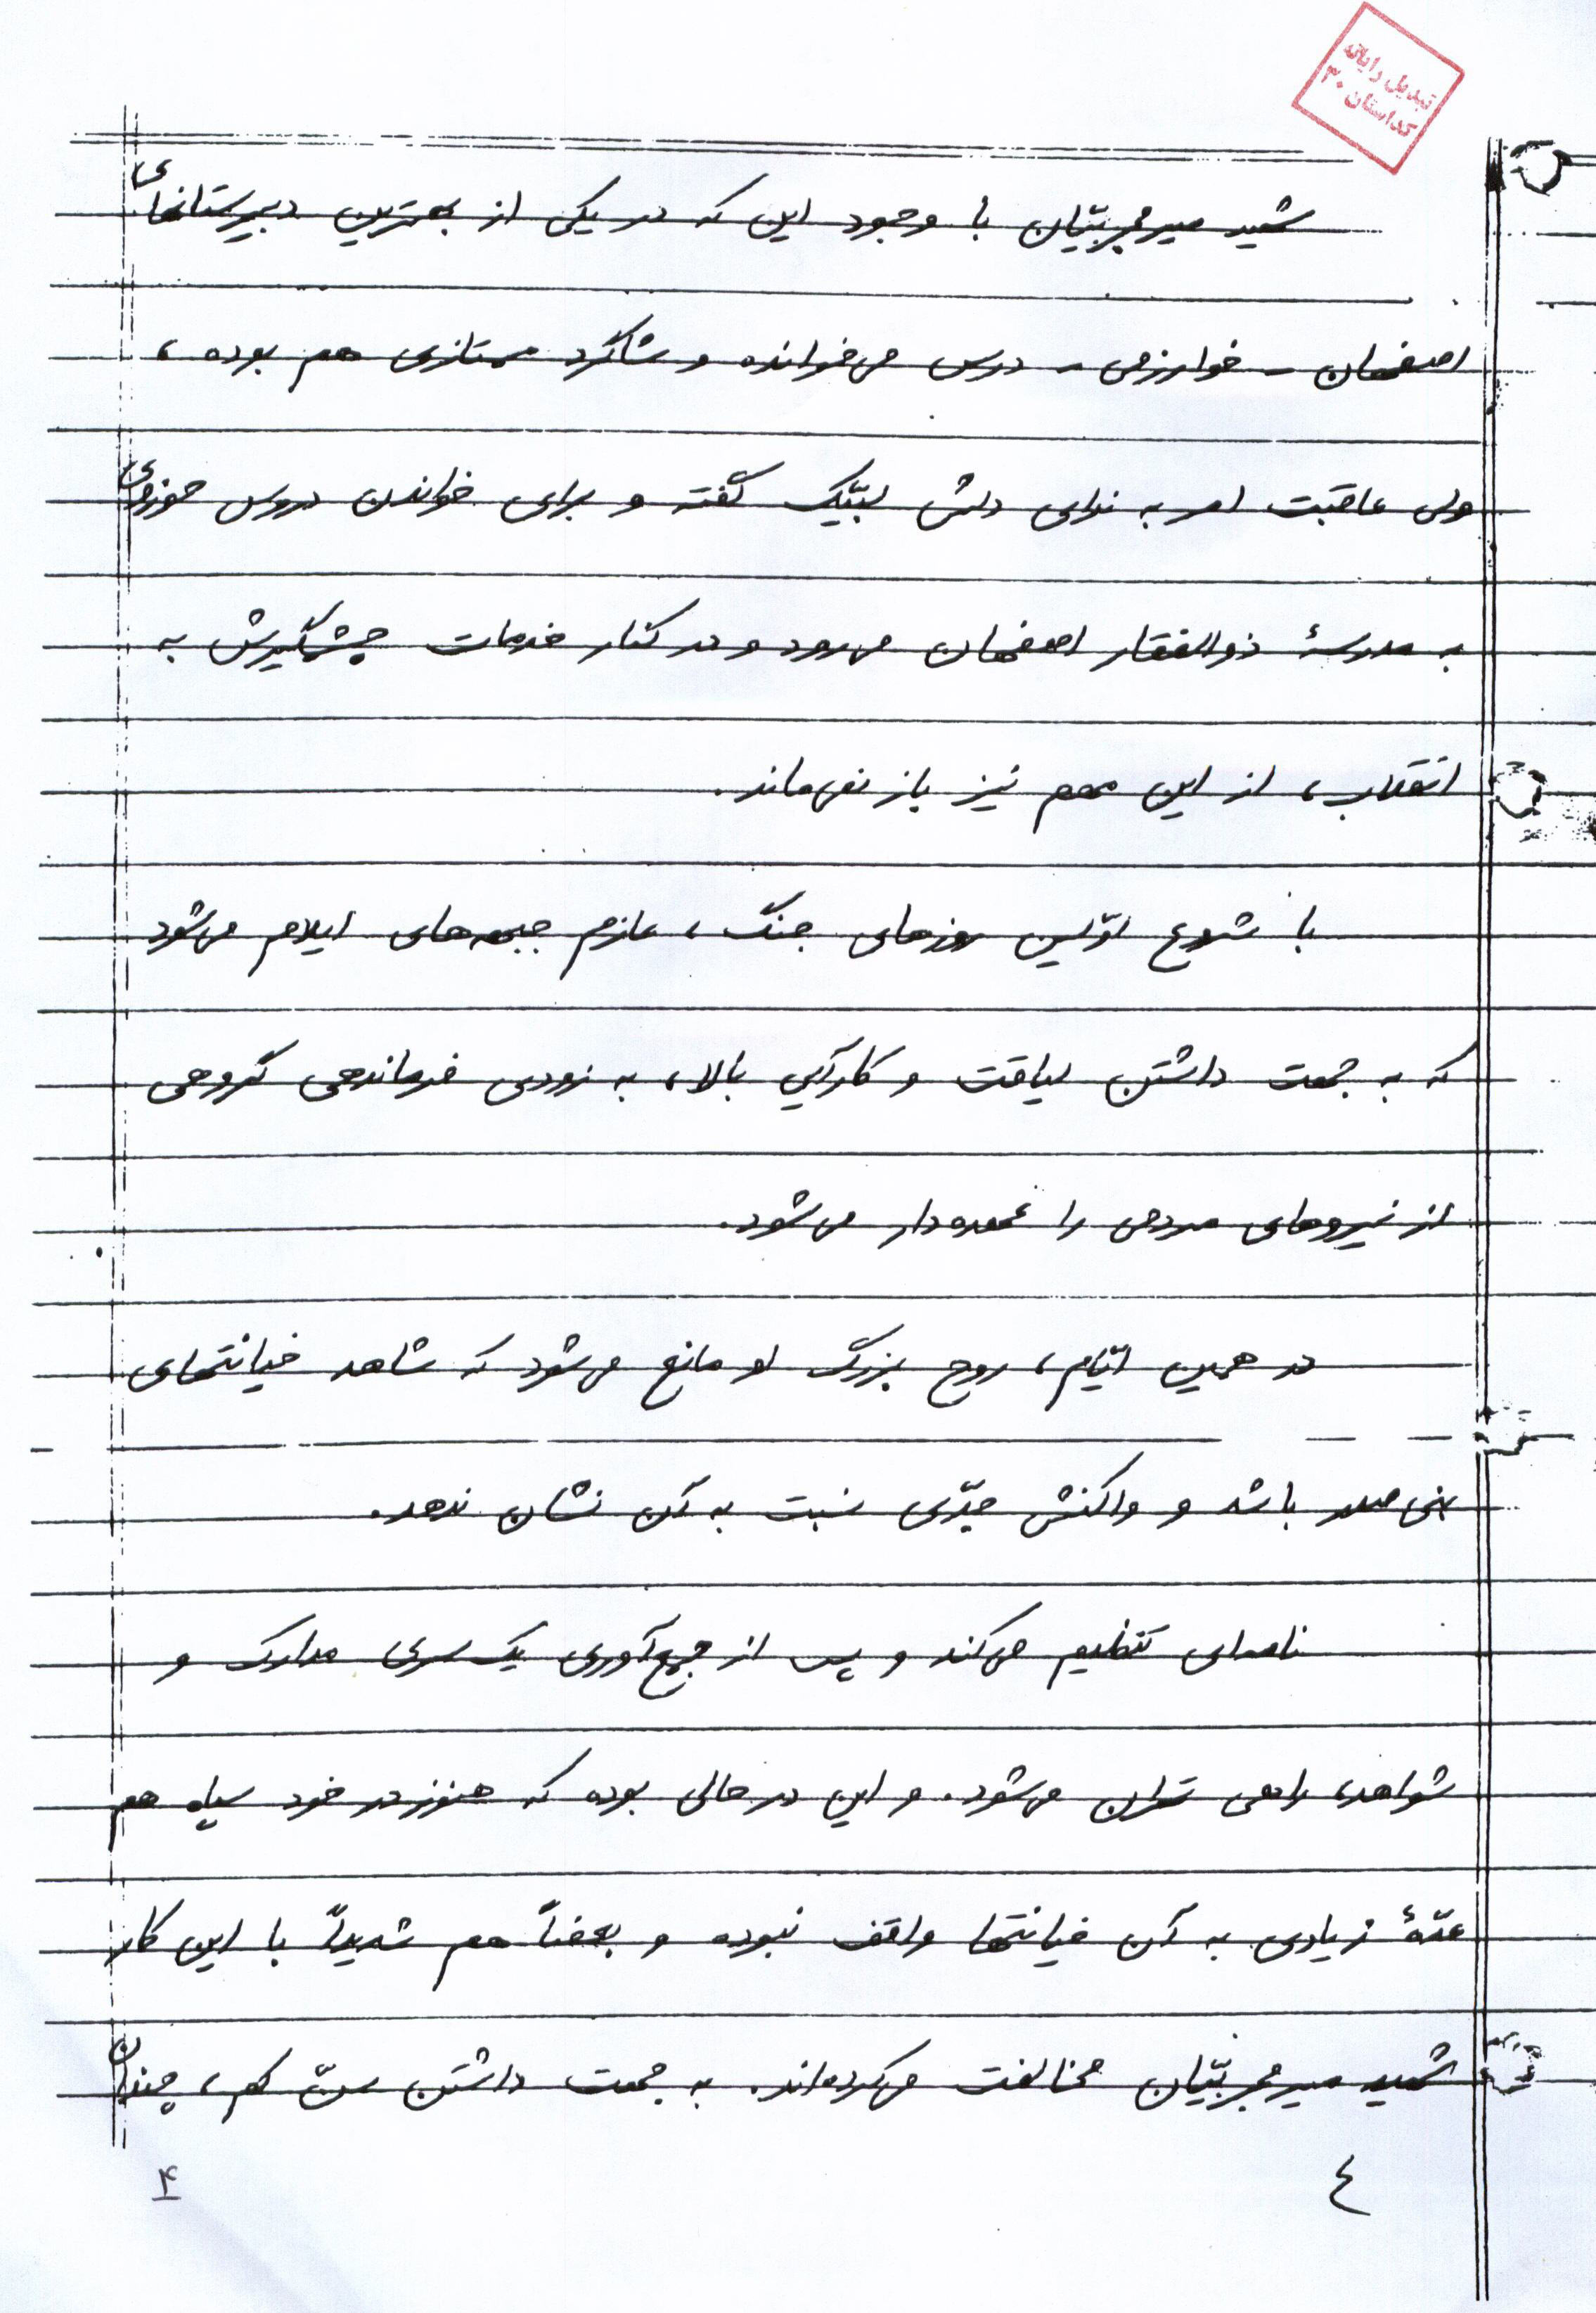 تبدیل رایانه
کد استان ۳۰
شهید میرمجربیّان با وجود این که در یکی از بهترین دبیرستانهای
اصفهان - خوارزمی - درس می‌خوانده و شاگرد ممتازی هم بوده،
ولی عاقبت امر به ندای دلش لبّیک گفته و برای خواندن دروس حوزوی
به مدرسهٔ ذوالفقار اصفهان می‌رود و در کنار خدمات چشمگیرش به
انقلاب، از این مهم نیز باز نمی‌ماند.
با شروع اوّلین روزهای جنگ، عازم جبهه‌های ایلام می‌شود
که به جهت داشتن لیاقت و کارآیی بالا، به زودی فرماندهی گروهی
از نیروهای مردمی را عهده‌دار می‌شود.
در همین ایّام، روح بزرگ او مانع می‌شود که شاهد خیانتهای
بنی‌صدر باشد و واکنش جدّی نسبت به آن نشان ندهد.
نامه‌ای تنظیم می‌کند و پس از جمع‌آوری یک سری مدارک و
شواهد، راهی تهران می‌شود. و این در حالی بوده که هنوز در خود سپاه هم
عدّهٔ زیادی به آن خیانتها واقف نبوده و بعضاً هم شدیداً با این کار
شهید میرمجربیّان مخالفت می‌کرده‌اند. به جهت داشتن سنّ کم، چندان
٤
۴